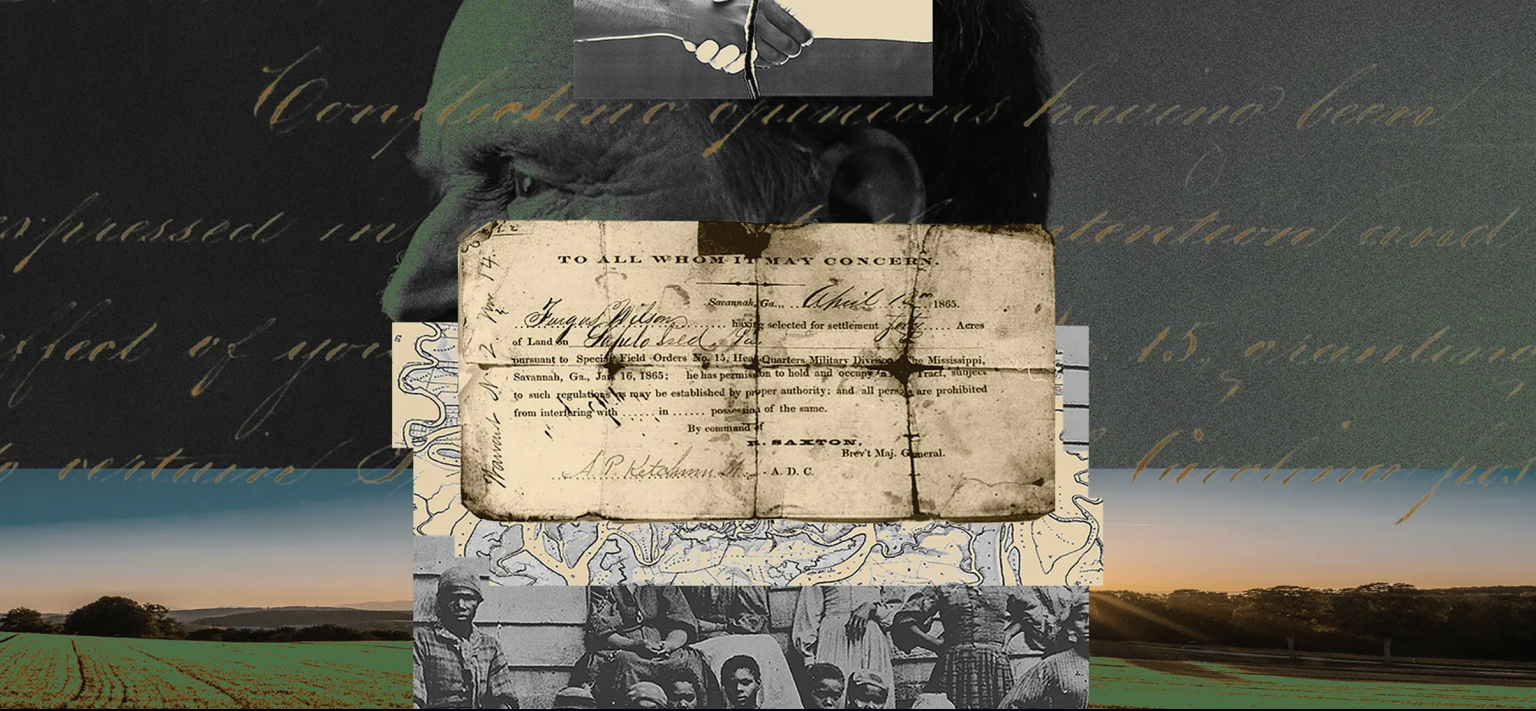 Conflicting opinions having been
expressed in intention and
effect of your 15, orig
to certain
TO ALL WHOM IT MAY CONCERN.
Savannah, Ga., April 12th 1865.
Fergus Wilson having selected for settlement forty Acres
of Land on Sapelo Ga
pursuant to Special Field Orders No. 15, Head-Quarters Military Division of the Mississippi,
Savannah, Ga., Jan 16, 1865; he has permission to hold and occupy Tract, subject
to such regulations as may be established by proper authority; and all persons are prohibited
from interfering with ...... in ...... possession of the same.
By command of
R. SAXTON,
Brev't Maj. General.
A. P. Ketchum A. D. C.
Warrant No. 2